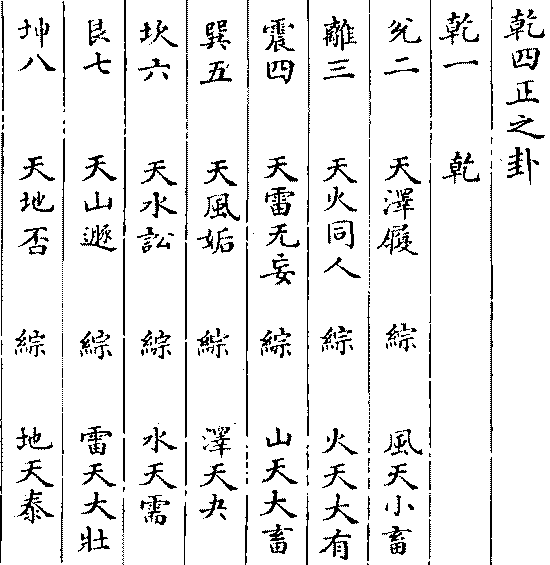 乾四正之卦
乾一 乾
兊二 天澤履 綜 風天小畜
離三 天火同人 綜 火天大有
震四 天雷无妄 綜 山天大畜
巽五 天風姤 綜 澤天夬
坎六 天水訟 綜 水天需
艮七 天山遯 綜 雷天大壯
坤八 天地否 綜 地天泰